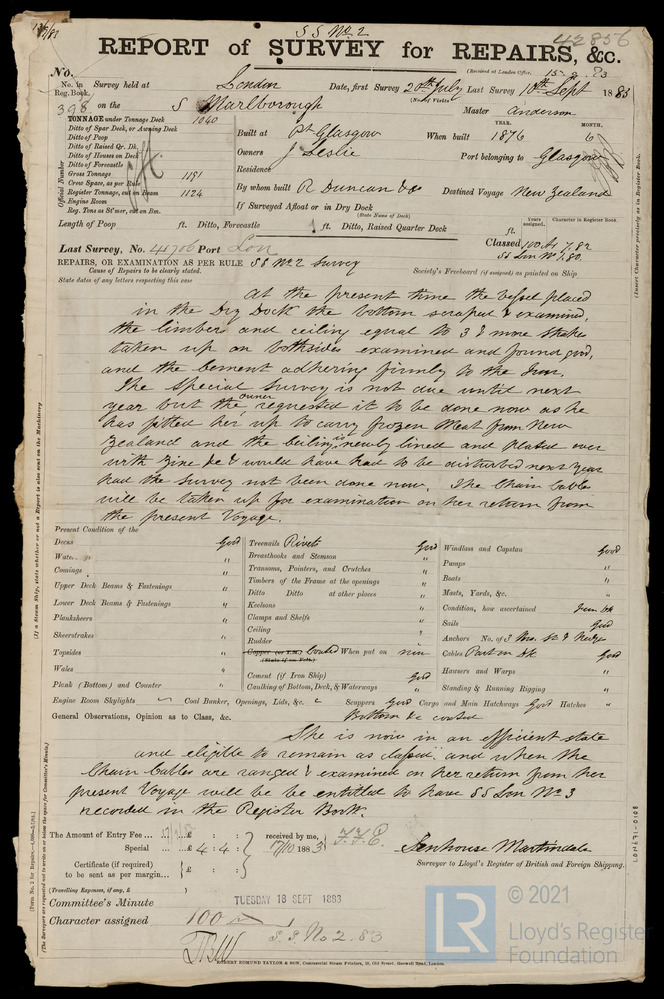 SS No. 2
42856
REPORT of SURVEY for REPAIRS, &c.
No. (Received at London Office, 15.9.83
No. in Reg. Book. Survey held at London Date, first Survey 20th July Last Survey 10th Sept 1883
(No. of Visits)
398 on the S Marlborough Master Anderson
TONNAGE under Tonnage Deck 1040
Ditto of Spar Deck, or Awning Deck
Ditto of Poop
Ditto of Raised Qr. Dk.
Ditto of Houses on Deck
Ditto of Forecastle
Gross Tonnage 1191
Crew Space, as per Rule
Register Tonnage, cut on Beam 1124
Engine Room
Reg. Tons as St'mer, cut on Bm.
Official Number
YEAR. MONTH.
Built at Pt Glasgow When built 1876 6
Owners J Leslie Port belonging to Glasgow
Residence
By whom built R Duncan & Co Destined Voyage New Zealand
If Surveyed Afloat or in Dry Dock
(State Name of Dock)
Length of Poop ft. Ditto, Forecastle ft. Ditto, Raised Quarter Deck ft.
Years assigned. Character in Register Book.
Last Survey, No. 41706 Port Lon
Classed 100 A1 7.82
SS Lon No 1.80
REPAIRS, OR EXAMINATION AS PER RULE SS No 2 Survey
Cause of Repairs to be clearly stated.
Society's Freeboard (if assigned) as painted on Ship
State dates of any letters respecting this case
At the present time the vessel placed
in the Dry Dock the bottom scraped & examined,
the limbers and ceiling equal to 3 & more strakes
taken up on bothsides examined and found good,
and the Cement adhering firmly to the Iron.
The Special Survey is not due until next
year but the owner requested it to be done now as he
has fitted her up to carry frozen Meat from New
Zealand and the Ceiling is newly lined and plated over
with Zinc &c & would have had to be disturbed next year
had the Survey not been done now. The Chain Cables
will be taken up for examination on her return from
the present Voyage.
Present Condition of the
Decks Good
Comings "
Upper Deck Beams & Fastenings "
Lower Deck Beams & Fastenings "
Planksheers "
Sheerstrakes "
Topsides "
Wales "
Plank (Bottom) and Counter "
Treenails Rivets Good
Breasthooks and Stemson "
Transoms, Pointers, and Crutches "
Timbers of the Frame at the openings "
Ditto Ditto at other places "
Keelsons "
Clamps and Shelfs "
Ceiling "
Rudder "
Copper (or Y.M.) Coated When put on now
(State if on Felt.)
Cement (if Iron Ship) Good
Caulking of Bottom, Deck, & Waterways "
Windlass and Capstan Good
Pumps "
Boats "
Masts, Yards, &c. "
Condition, how ascertained from dk
Sails Good
Anchors No. of 3
Cables Part on dk Good
Hawsers and Warps "
Standing & Running Rigging "
Engine Room Skylights Coal Bunker, Openings, Lids, &c. Scuppers Good Cargo and Main Hatchways Good Hatches "
General Observations, Opinion as to Class, &c. Bottom &c coated
She is now in an efficient state
and eligible to remain as classed, and when the
Chain Cables are ranged & examined on her return from her
present Voyage will be be entitled to have SS Lon No 3
recorded in the Register Book.
The Amount of Entry Fee ... £ : : received by me,
Special ... £ 4 : 4 : 17/10 1883
Certificate (if required) to be sent as per margin... £ : :
(Travelling Expenses, if any, £ )
Senhouse Martindale
Surveyor to Lloyd's Register of British and Foreign Shipping.
Committee's Minute TUESDAY 18 SEPT 1883
Character assigned 100 A 1
S.S. No 2.83
ROBERT EDMUND TAYLOR & SON, Commercial Steam Printers, 19, Old Street, Goswell Road, London.
(If a Steam Ship, state whether or not a Report is also sent on the Machinery
(Insert Character precisely as in Register Book.
(The Surveyors are requested not to write on or below the space for Committee's Minute.)
LON671-0108
LR
© 2021
Lloyd's Register
Foundation